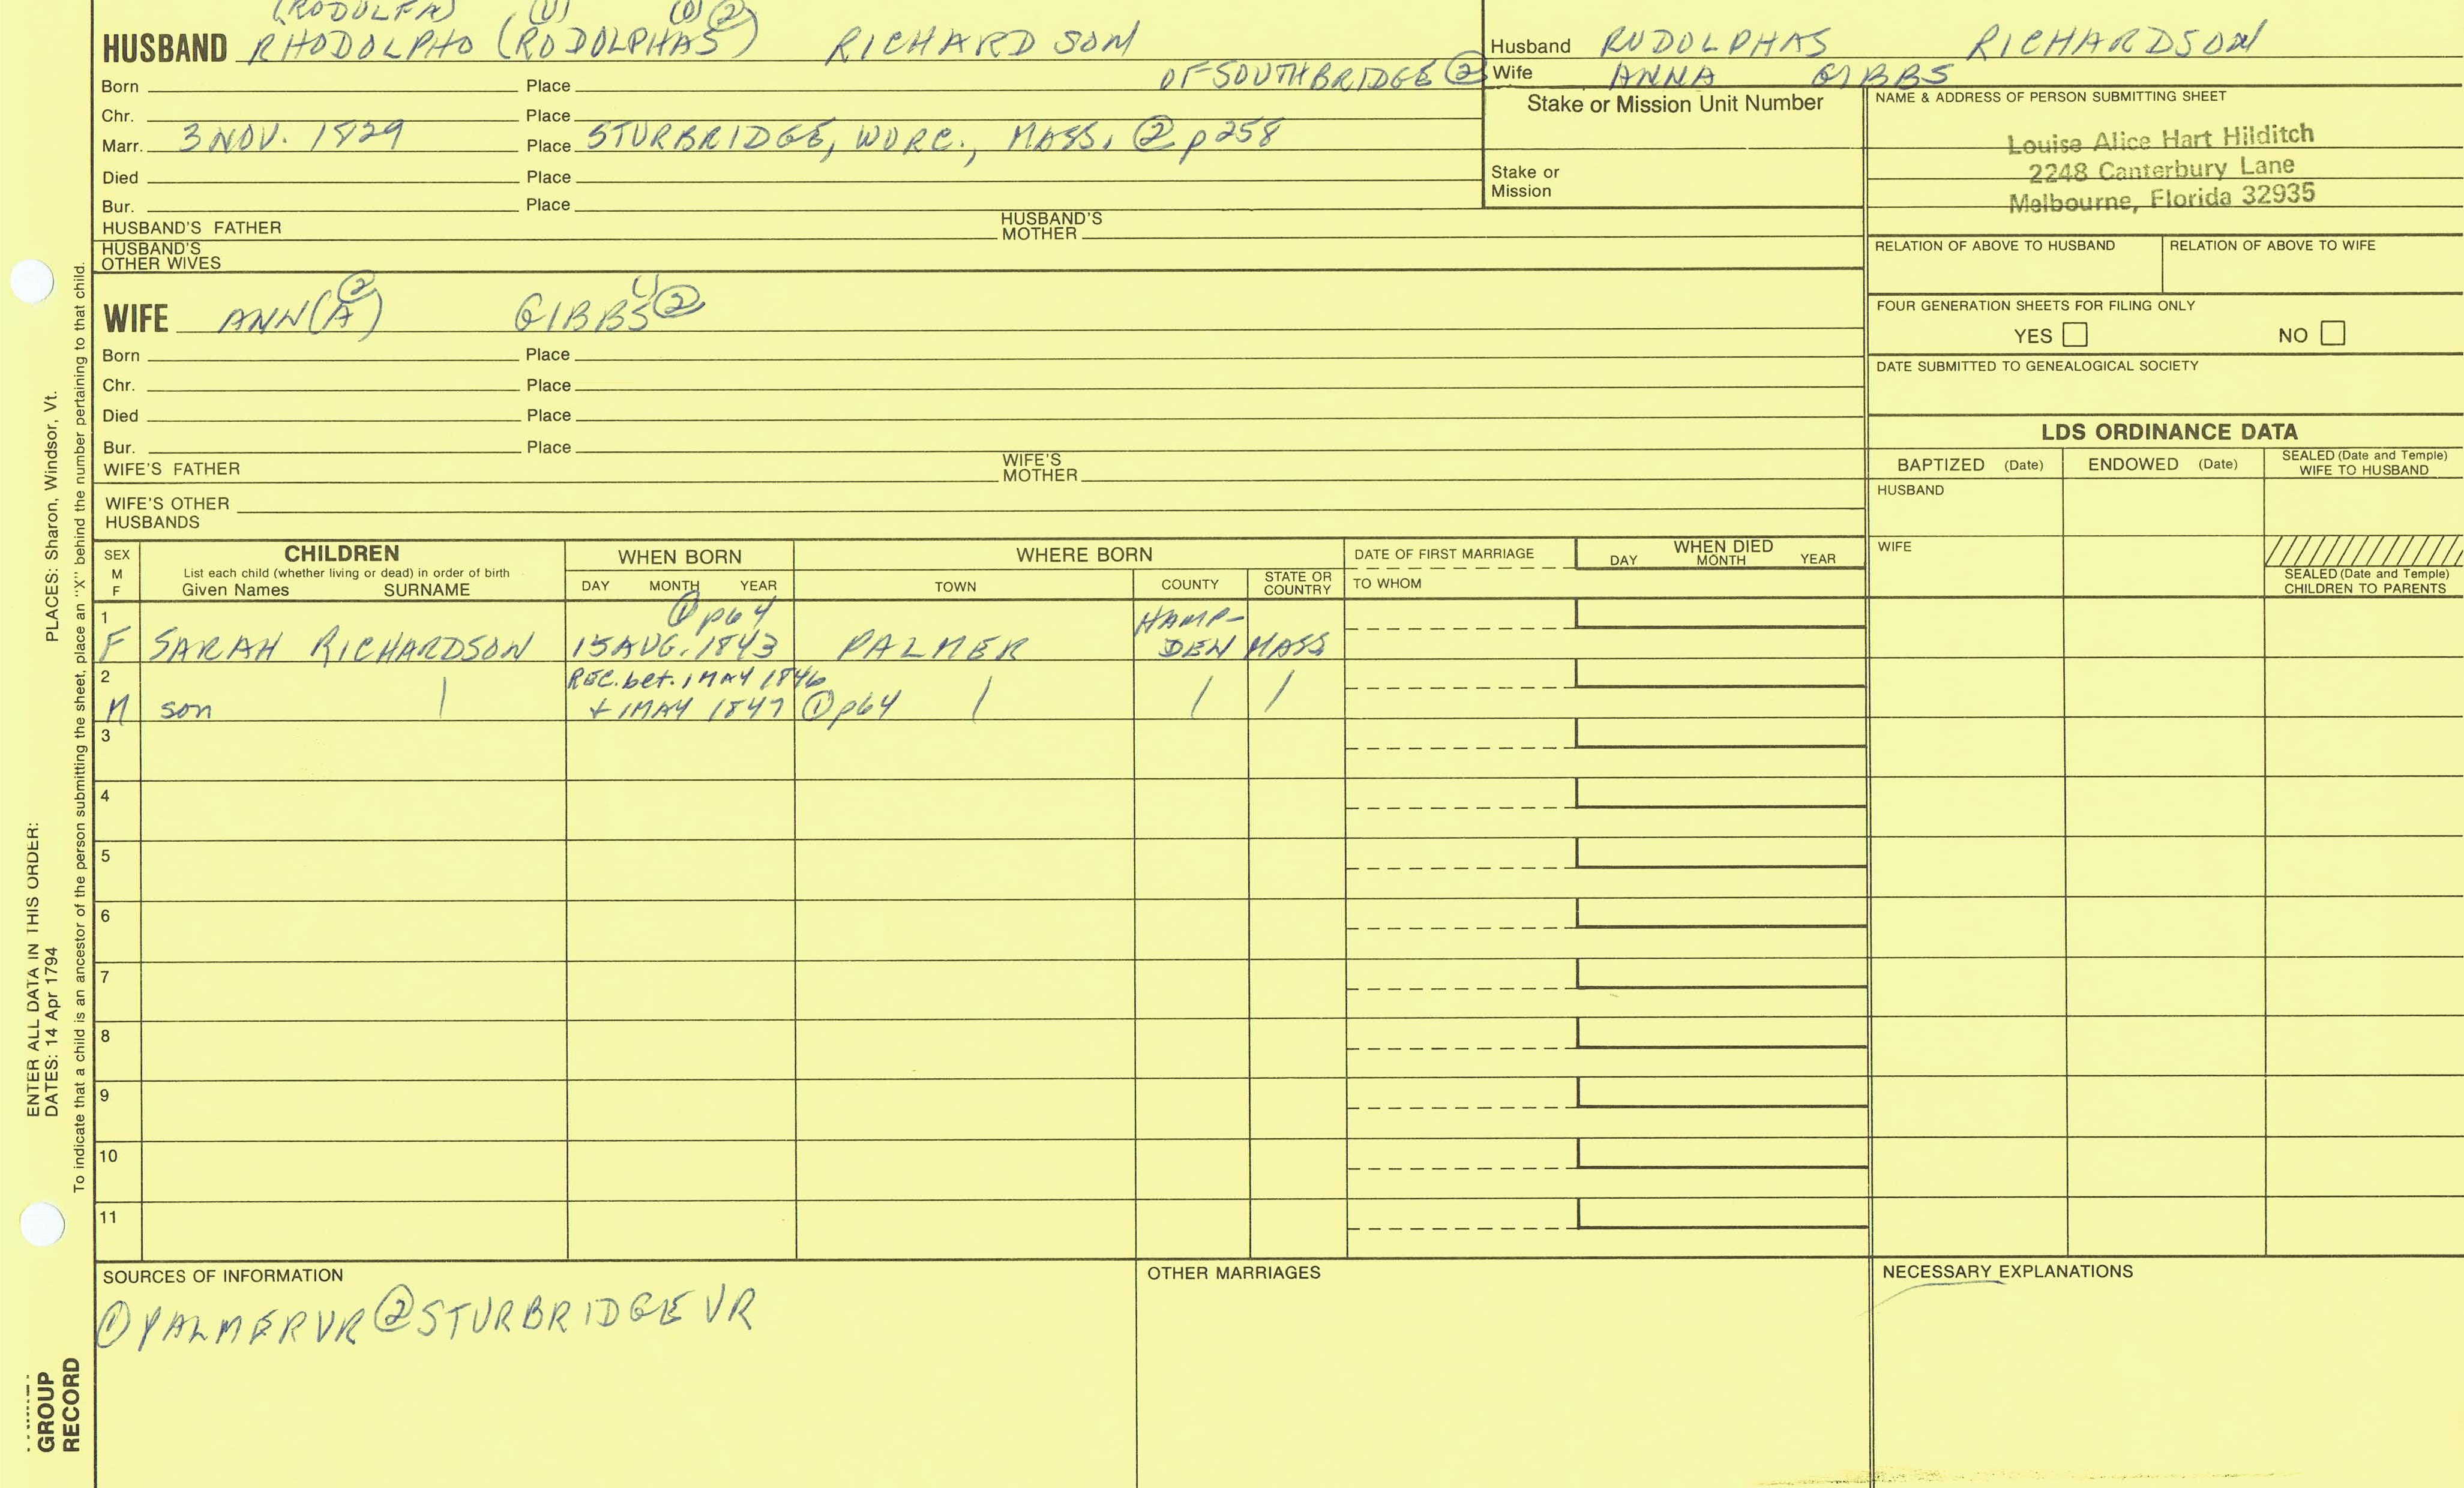 (RODOLFA) (U) (O) ②
HUSBAND RHODOLPHO (RODOLPHAS) RICHARDSON
OF SOUTHBRIDGE ②
Born Place
Chr. Place
Marr. 3 NOV. 1829 Place STURBRIDGE, WORC., MASS. ② p258
Died Place
Bur. Place
HUSBAND'S FATHER HUSBAND'S MOTHER
HUSBAND'S
OTHER WIVES
Husband RUDOLPHAS RICHARDSON
Wife ANNA GIBBS
Stake or Mission Unit Number
Stake or
Mission
NAME & ADDRESS OF PERSON SUBMITTING SHEET
Louise Alice Hart Hilditch
2248 Canterbury Lane
Melbourne, Florida 32935
RELATION OF ABOVE TO HUSBAND RELATION OF ABOVE TO WIFE
FOUR GENERATION SHEETS FOR FILING ONLY
YES NO
DATE SUBMITTED TO GENEALOGICAL SOCIETY
WIFE ANN(A) ② GIBBS ②
Born Place
Chr. Place
Died Place
Bur. Place
WIFE'S FATHER WIFE'S MOTHER
WIFE'S OTHER
HUSBANDS
LDS ORDINANCE DATA
BAPTIZED (Date) ENDOWED (Date) SEALED (Date and Temple) WIFE TO HUSBAND
HUSBAND
WIFE
SEALED (Date and Temple)
CHILDREN TO PARENTS
SEX
M
F
CHILDREN
List each child (whether living or dead) in order of birth
Given Names SURNAME
WHEN BORN
DAY MONTH YEAR
WHERE BORN
TOWN COUNTY STATE OR COUNTRY
DATE OF FIRST MARRIAGE
TO WHOM
WHEN DIED
DAY MONTH YEAR
1 ① p64 HAMP-
F SARAH RICHARDSON 15 AUG. 1843 PALMER DEN MASS
2 REC. bet. 1 MAY 1846
M son + 1 MAY 1847 ① p64
3
4
5
6
7
8
9
10
11
SOURCES OF INFORMATION
① PALMER VR ② STURBRIDGE VR
OTHER MARRIAGES
NECESSARY EXPLANATIONS
ENTER ALL DATA IN THIS ORDER:
DATES: 14 Apr 1794 PLACES: Sharon, Windsor, Vt.
To indicate that a child is an ancestor of the person submitting the sheet, place an "X" behind the number pertaining to that child.
GROUP
RECORD